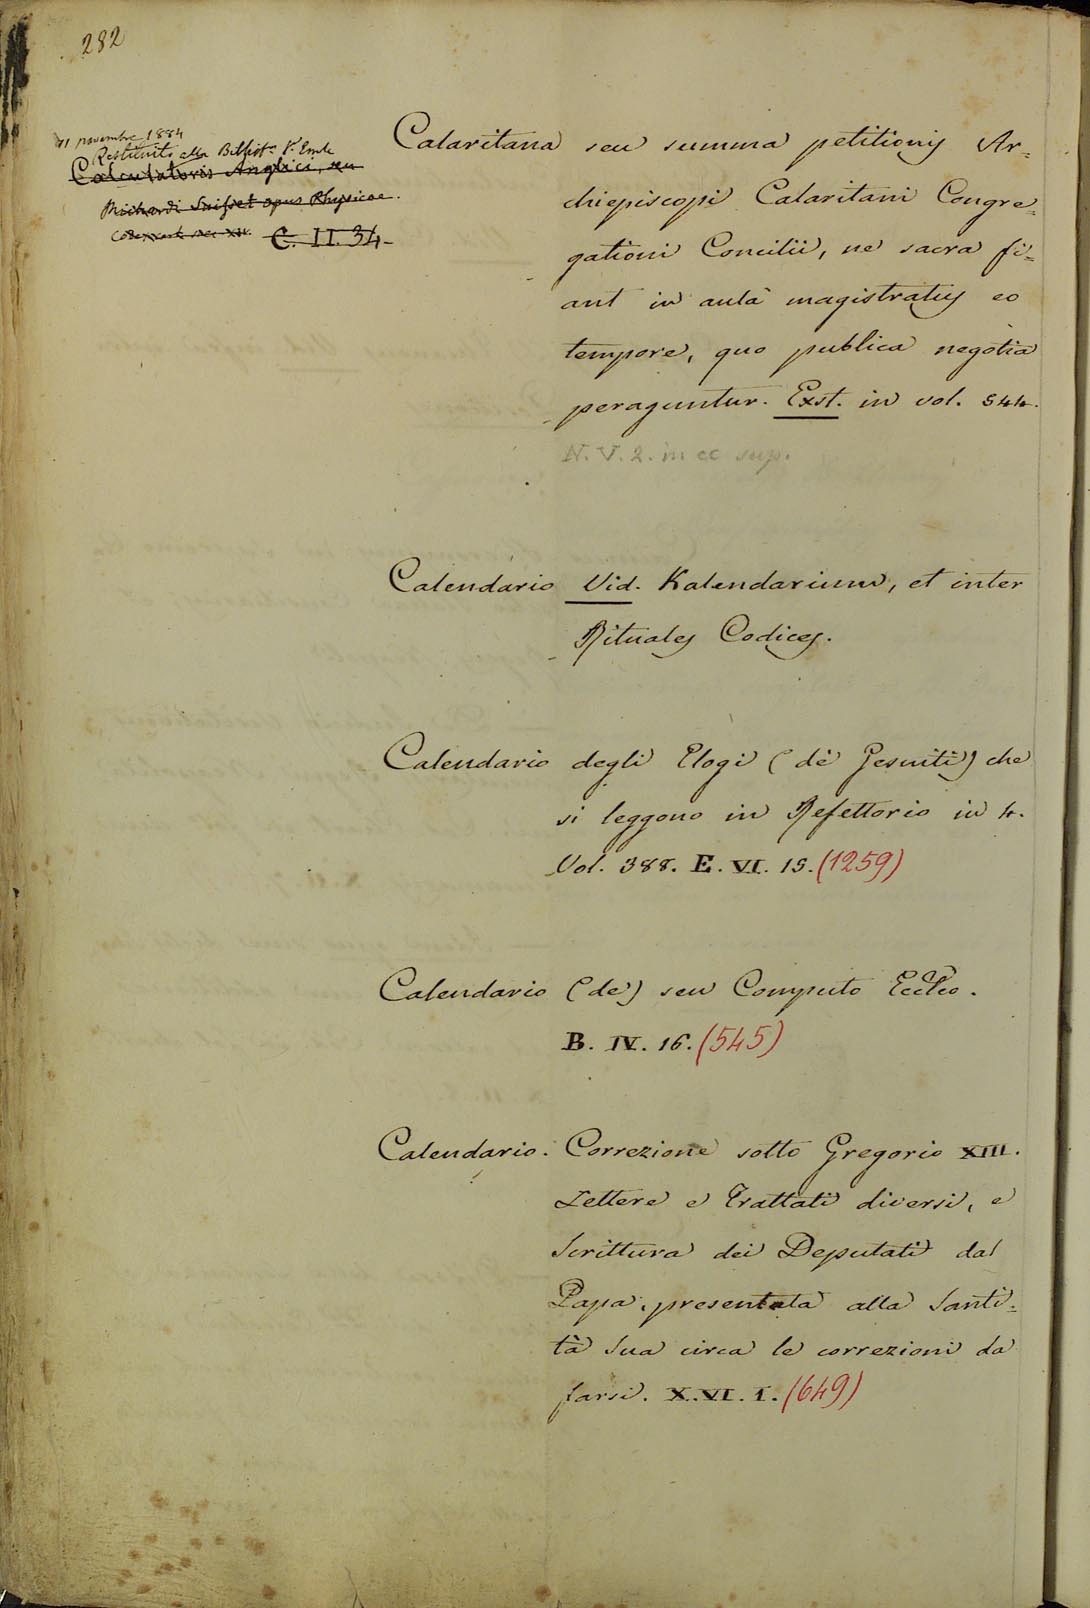 282
novembre 1884
Restituito alla Bibliot.ª V. Em.le
Calculatoris Anglici, seu
Richardi Suisset opus Physicae.
C. II. 34
Calaritana seu summa petitionis Ar=
chiepiscopi Calaritani Congre=
gationi Concilii, ne sacra fi=
ant in aulâ magistratus eo
tempore, quo publica negotia
peraguntur. Exst. in vol. 544.
N. V. 2. in cc sup.
Calendario Vid. Kalendarium, et inter
Rituales Codices.
Calendario degli Elogi (de' Gesuiti) che
si leggono in Refettorio in 4.
Vol. 388. E. VI. 15. (1259)
Calendario (de) seu Computo Eccl.co.
B. IV. 16. (545)
Calendario. Correzione sotto Gregorio XIII.
Lettere e Trattati diversi, e
Scrittura dei Deputati dal
Papa, presentata alla Santi=
tà Sua circa le correzioni da
farsi. X. VI. 1. (649)